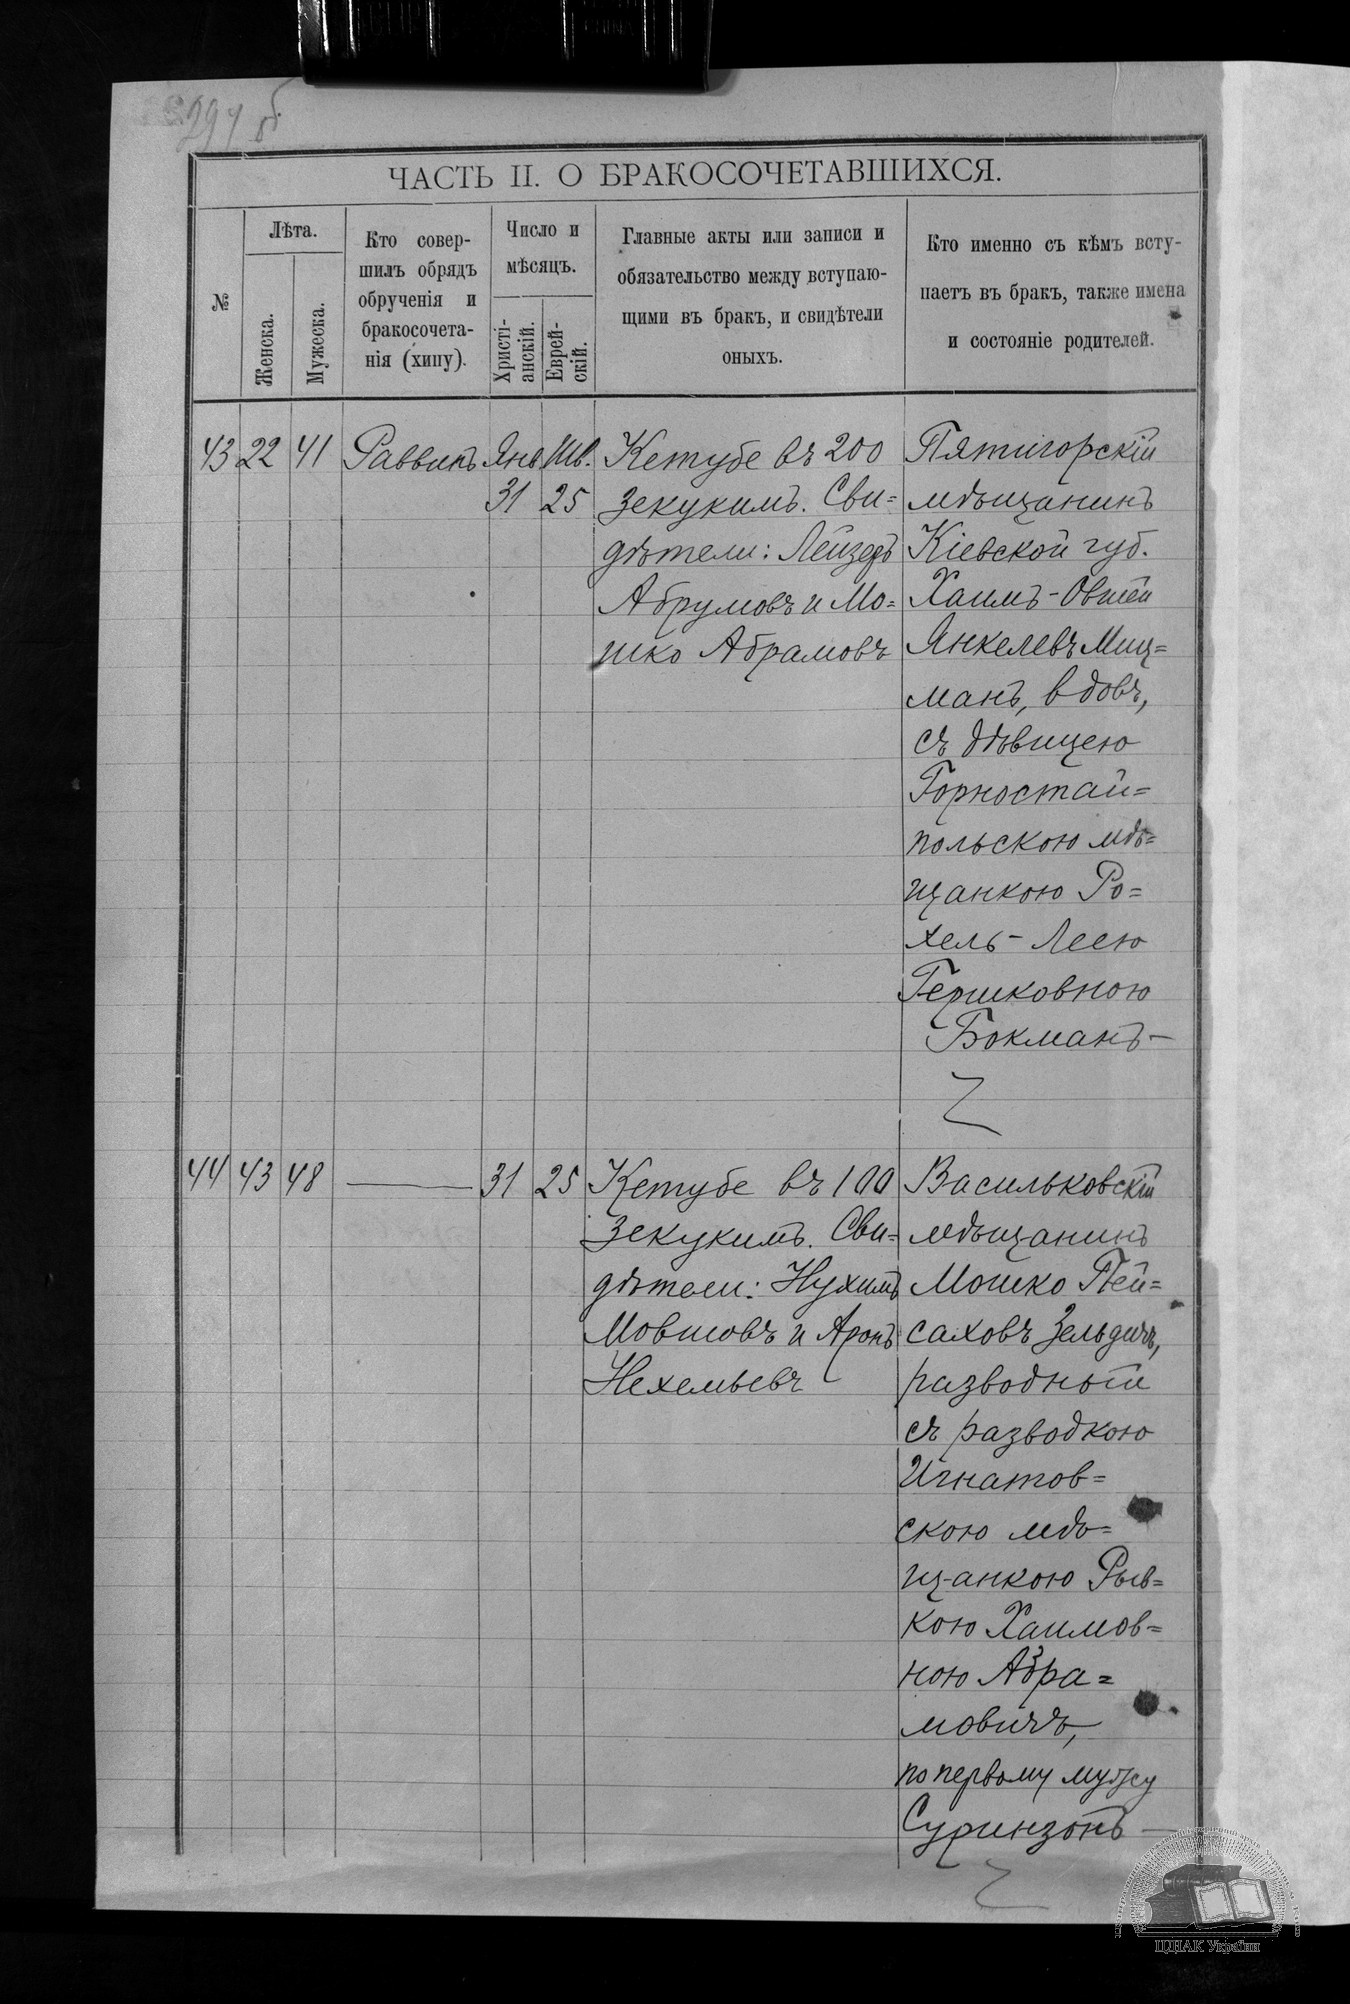 294 об
ЧАСТЬ II. О БРАКОСОЧЕТАВШИХСЯ.
№
Лѣта.
Женска.
Мужеска.
Кто совер-
шилъ обрядъ
обрученія и
бракосочета-
нія (хипу).
Число и
мѣсяцъ.
Христі-
анскій.
Еврей-
скій.
Главные акты или записи и
обязательство между вступаю-
щими въ бракъ, и свидѣтели
оныхъ.
Кто именно съ кѣмъ всту-
паетъ въ бракъ, также имена
и состояніе родителей.
43 22 41 Раввинъ Янв. Шв.
31 25
Кетубе въ 200
зекукимъ. Сви=
дѣтели: Лейзеръ
Абрумовъ и Мо=
шко Абрамовъ
Пятигорскій
мѣщанинъ
Кіевской губ.
Хаимъ-Овшей
Янкелевъ Миц=
манъ, вдовъ,
съ дѣвицею
Горностай=
польскою мѣ=
щанкою Ро=
хель-Леею
Гершковною
Бокманъ—
44 43 48 — 31 25
Кетубе въ 100
зекукимъ. Сви=
дѣтели: Нухимъ
Мовшовъ и Аронъ
Нехемьевъ
Васильковскій
мѣщанинъ
Мошко Пей=
саховъ Зельдичъ,
разводный
съ разводкою
Игнатов=
скою мѣ=
щанкою Рыв=
кою Хаимов=
ною Абра=
мовичъ,
по первому мужу
Суринзонъ—
ЦДІАК України